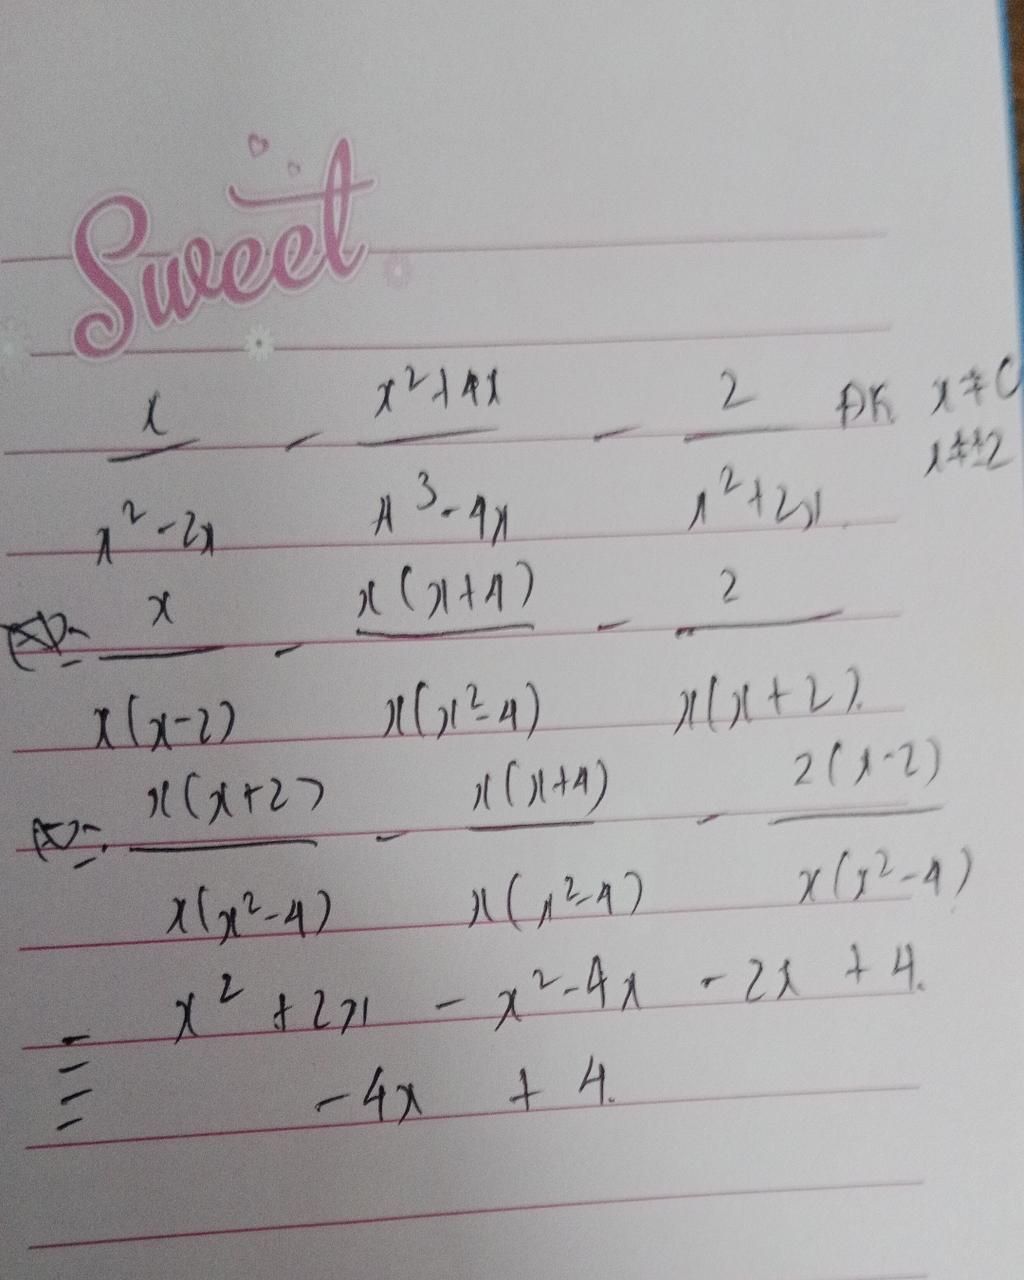 Sweet
x/(x²-2x) - (x²+4x)/(x³-4x) - 2/(x²+2x) ĐK x≠0
x≠±2
(=)= x/(x(x-2)) - x(x+4)/(x(x²-4)) - 2/(x(x+2))
(=)= x(x+2)/(x(x²-4)) - x(x+4)/(x(x²-4)) - 2(x-2)/(x(x²-4))
= x² + 2x - x² - 4x - 2x + 4.
= -4x + 4.